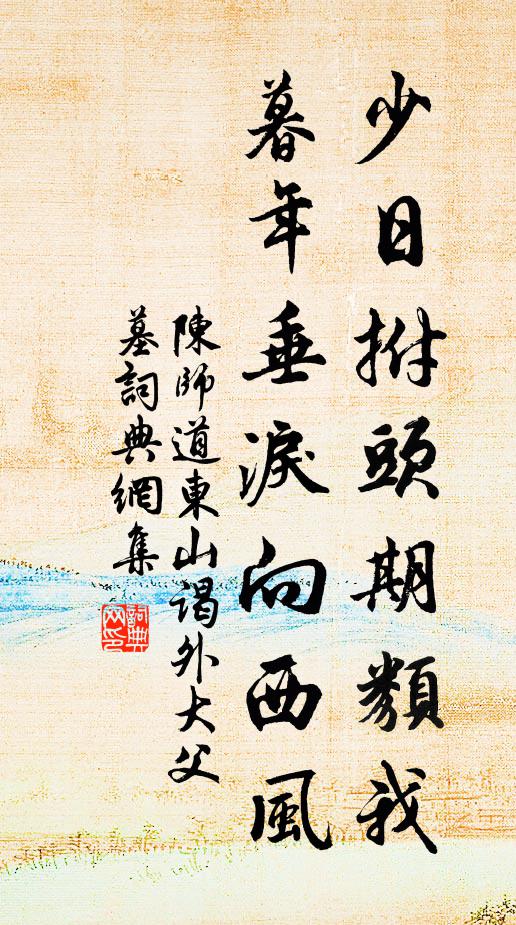 少日拊頭期類我
暮年垂淚向西風
陳師道東山謁外大父
墓詞典網集
詞典网印